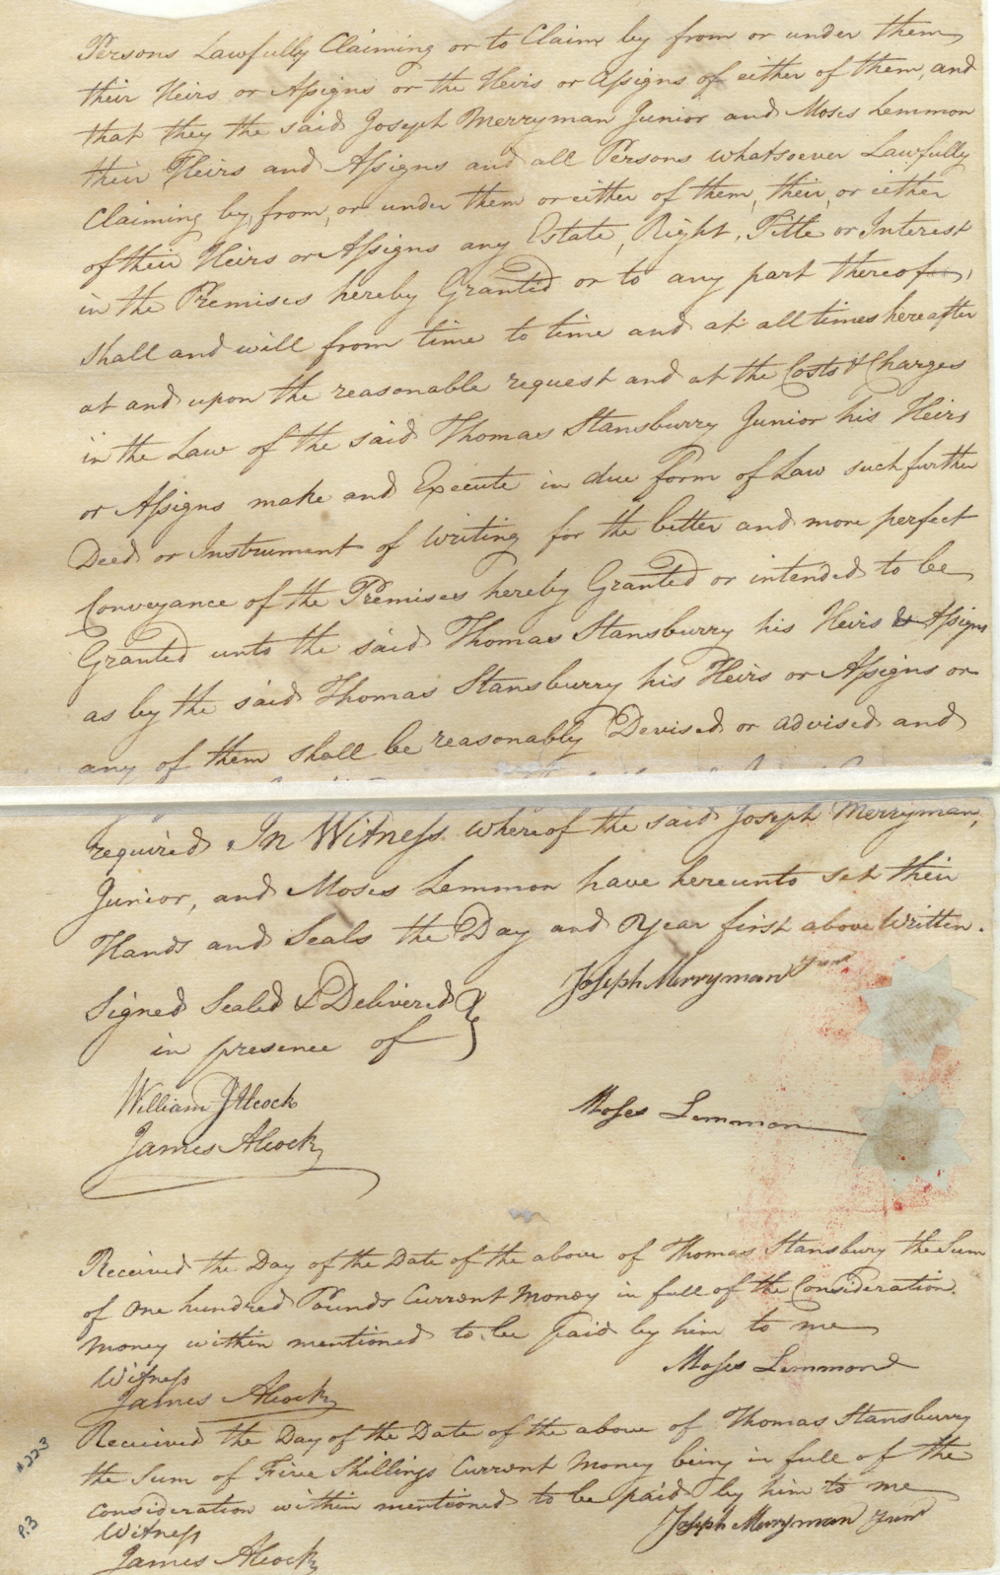 Persons Lawfully Claiming or to Claim by from or under them
their Heirs or Assigns or the Heirs or assigns of either of them, and
that they the said Joseph Merryman Junior and Moses Lemmon
their Heirs and Assigns and all Persons whatsoever Lawfully
Claiming by, from, or under them or either of them, their, or either
of their Heirs or Assigns any Estate, Right, Title or Interest
in the Premises hereby Granted or to any part thereof,
Shall and will from time to time and at all times hereafter
at and upon the reasonable request and at the Costs & Charges
in the Law of the said Thomas Stansburry Junior his Heirs
or Assigns make and Execute in due form of Law such further
Deed or Instrument of Writing for the better and more perfect
Conveyance of the Premises hereby Granted or intended to be
Granted unto the said Thomas Stansburry his Heirs & Assigns
as by the said Thomas Stansburry his Heirs or Assigns or
any of them shall be reasonably Devised or advised and
required. In Witness whereof the said Joseph Merryman,
Junior, and Moses Lemmon have hereunto set their
Hands and Seals the Day and Year first above Written.
Joseph Merryman Junr
Signed Sealed & Delivered
in presence of
William J Alcock
Moses Lemmon
James Alcock
Received the Day of the Date of the above of Thomas Stansbury the Sum
of One hundred Pounds Current Money in full of the Consideration
Money within mentioned to be Paid by him to me
Witness
Moses Lemmond
James Alcock
Received the Day of the Date of the above of Thomas Stansburry
the Sum of Five Shillings Current Money being in full of the
Consideration within mentioned to be paid by him to me
Witness
Joseph Merryman Junr
James Alcock
#223
P.3